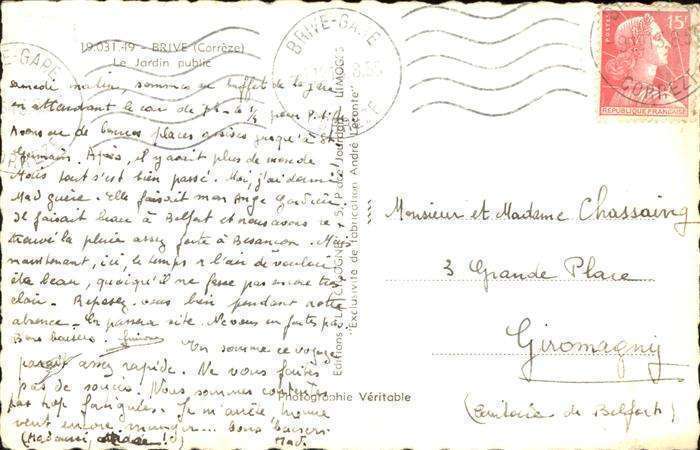 19.031.49 - BRIVE (Corrèze)
Le Jardin public
Samedi matin, sommes au buffet de la gare
en attendant le car de
Avons eu de bonnes places assises jusqu'à St
Germain. Après, il y avait plus de monde
Mais tout s'est bien passé. Moi, j'ai dormi
Mad guère. Elle faisait mon Ange Gardien
Il faisait beau à Belfort et nous avons re
trouvé la pluie assez forte à Besançon. Mais
maintenant, ici, le temps a l'air de vouloir
être beau, quoiqu'il ne fasse pas encore très
clair. Reposez-vous bien pendant notre
absence. Ça passera vite. Ne vous en faites pas.
Bons baisers.
En somme ce voyage
paraît assez rapide. Ne vous faites
pas de soucis. Nous sommes contentes
pas trop fatiguées. Je m'arrête,
veut encore manger... Bons baisers
Mad.
BRIVE-GARE
CORREZE
POSTES 15F
REPUBLIQUE FRANÇAISE
Monsieur et Madame Chassaing
3 Grande Place
Giromagny
(Territoire de Belfort)
LIMOGES
"Exclusivité de fabrication André Leconte"
Photographie Véritable